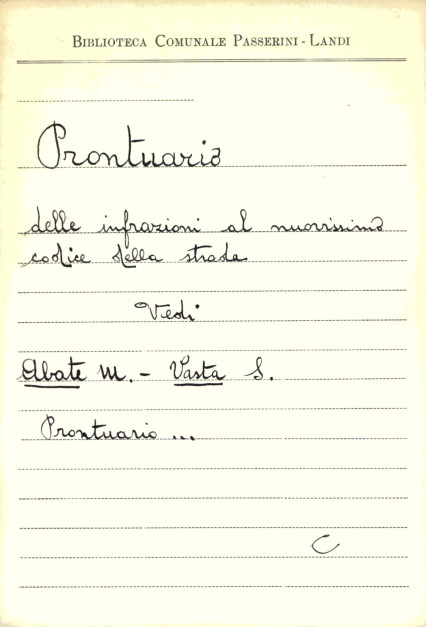 BIBLIOTECA COMUNALE PASSERINI - LANDI
Prontuario
delle infrazioni al nuovissimo
codice della strada
Vedi
Abate M. - Vasta S.
Prontuario ...
C